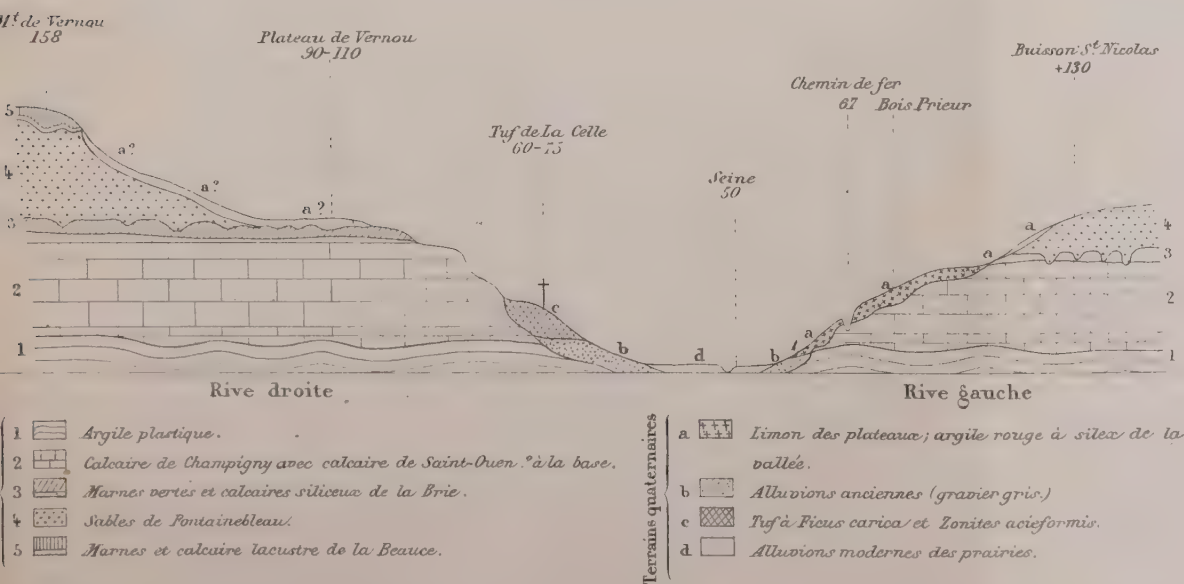 Mt. de Vernou
158
Plateau de Vernou
90-110
Buisson St. Nicolas
+130
Chemin de fer
67 Bois Prieur
Tuf de La Celle
60-75
Seine
50
5
4
3
2
1
a?
a?
a?
c
b
d
b
a
a
a
a
4
3
2
1
Rive droite
Rive gauche
1 Argile plastique.
2 Calcaire de Champigny avec calcaire de Saint-Ouen ? à la base.
3 Marnes vertes et calcaires siliceux de la Brie.
4 Sables de Fontainebleau.
5 Marnes et calcaire lacustre de la Beauce.
Terrains quaternaires
a Limon des plateaux; argile rouge à silex de la
vallée.
b Alluvions anciennes (gravier gris.)
c Tuf à Ficus carica et Zonites acieformis.
d Alluvions modernes des prairies.